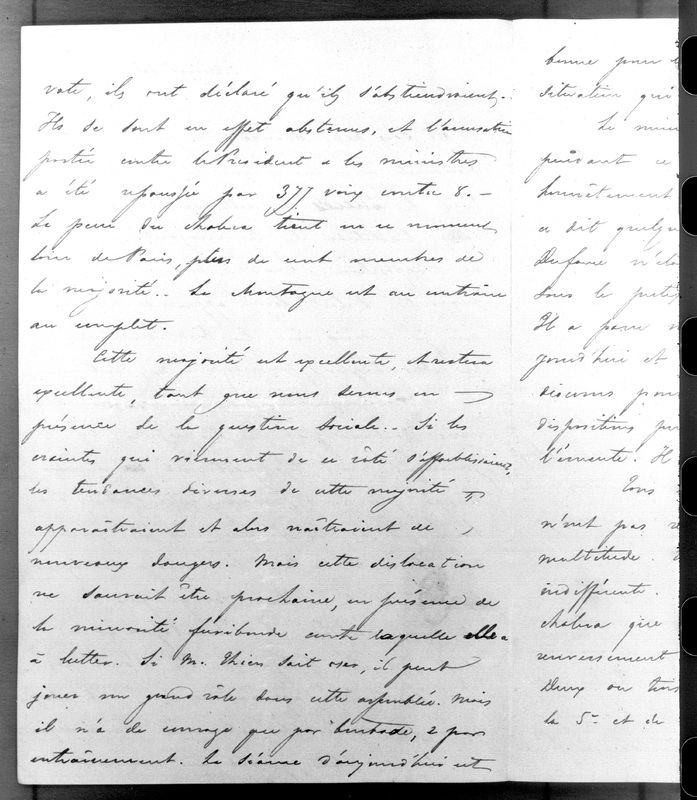 vote, ils ont déclaré qu'ils s'abstiendraient.
Ils se sont en effet abstenus, et l'accusation
portée contre le Président & les ministres
a été repoussée par 377 voix contre 8. —
La peur du choléra tient en ce moment
loin de Paris, plus de cent membres de
la majorité.. La Montagne est au contraire
au complet.
Cette majorité est excellente, et restera
excellente, tant que nous serons en
présence de la question sociale.. Si les
craintes qui viennent de ce côté s'affaiblissaient,
les tendances diverses de cette majorité
apparaîtraient et alors naîtraient de
nouveaux dangers. Mais cette dislocation
ne saurait être prochaine, en présence de
la minorité furibonde contre laquelle elle a
à lutter. Si M. Thiers sait oser, il peut
jouer un grand rôle dans cette assemblée. Mais
il n'a de courage que par boutade, & par
entraînement. La séance d'aujourd'hui est
bonne pour
situation qui
Le
pendant ce
honnêtement
a dit
Dufaure
sous le
Il a
et
discours pour
dispositions
l'émeute. Il
Tous
n'est pas
multitude.
indifférente.
choléra que
renversement
Deux ou trois
la 5e et de